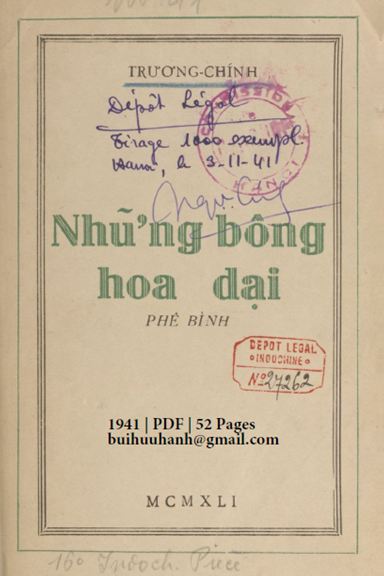 TRƯƠNG-CHÍNH
Dépôt Légal
Tirage 1000 exempl.
Hanoi, le 3-11-41
Những bông
hoa dại
PHÊ BÌNH
DEPOT LEGAL
INDOCHINE
Nº27262
1941 | PDF | 52 Pages
buihuuhanh@gmail.com
MCMXLI
16º Indoch. Pièce